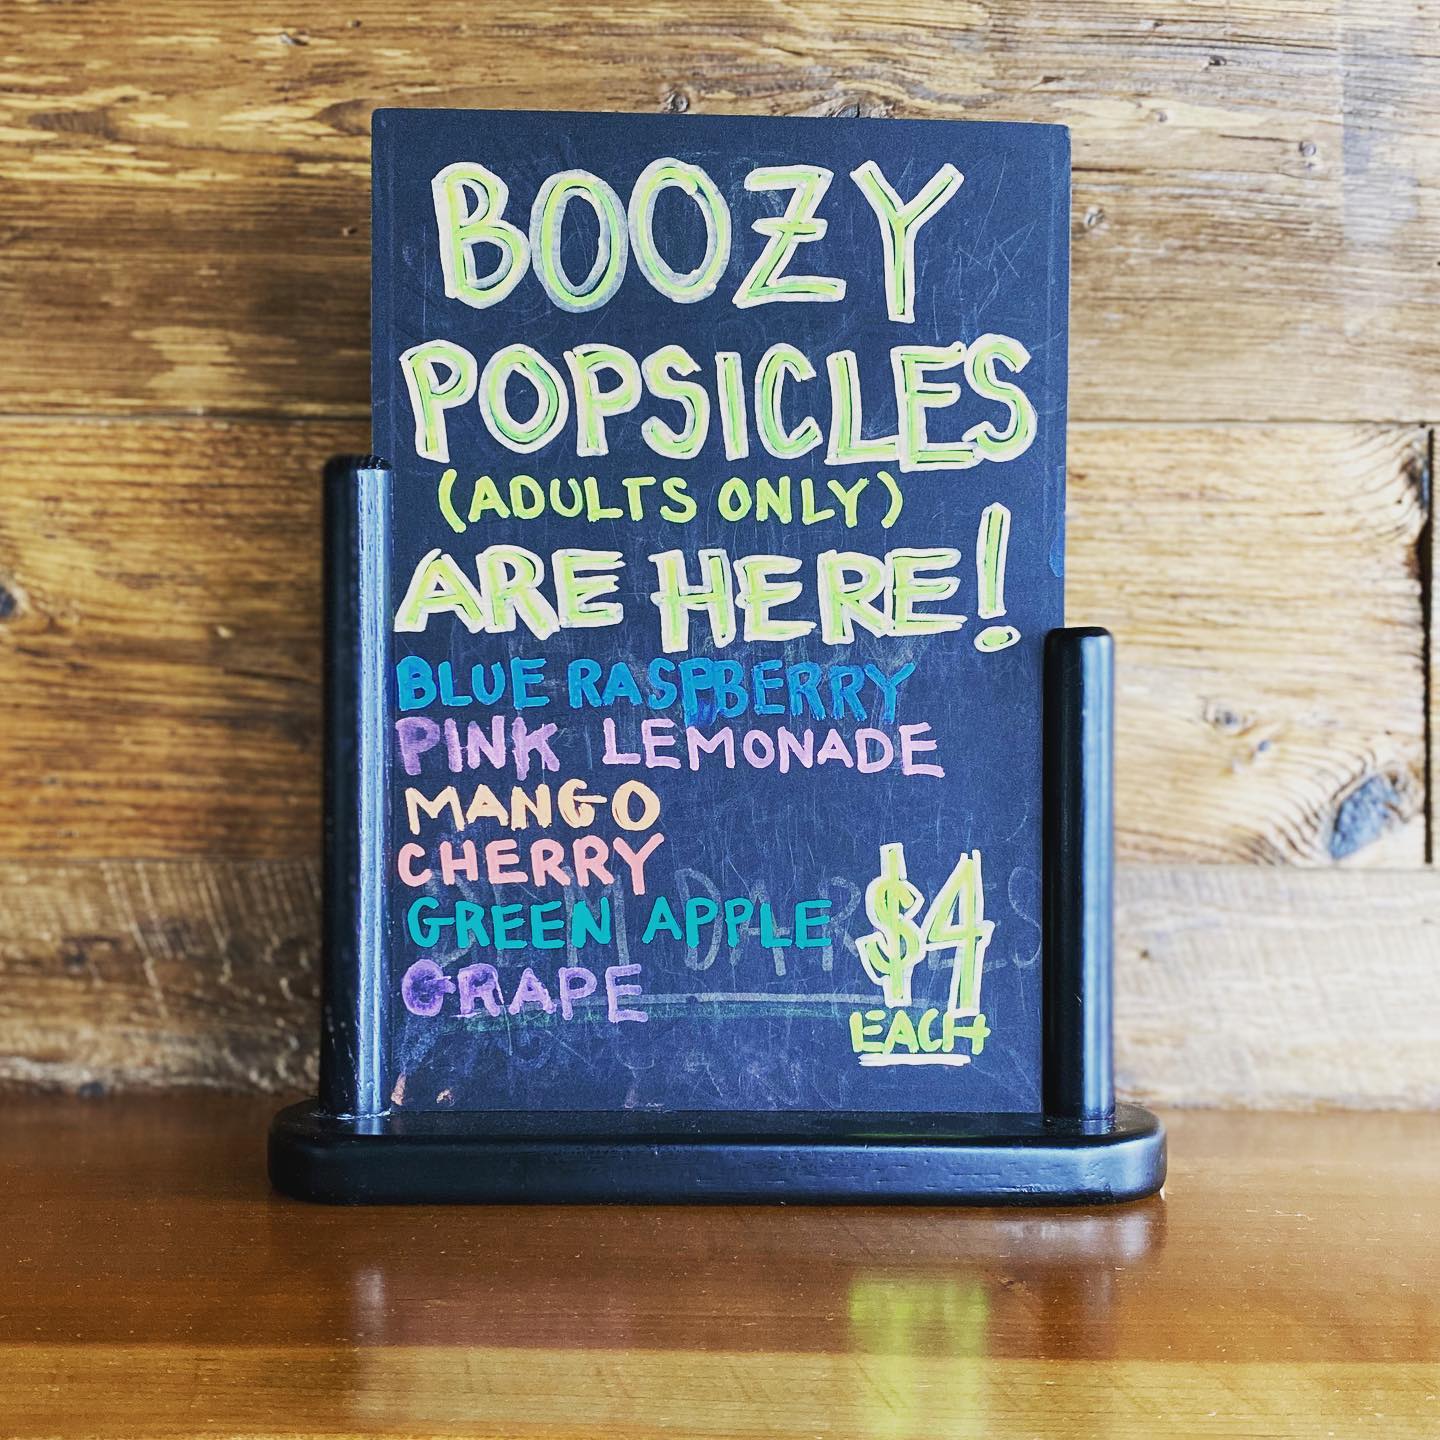 BOOZY
POPSICLES
(ADULTS ONLY)
ARE HERE!
BLUE RASPBERRY
PINK LEMONADE
MANGO
CHERRY
GREEN APPLE
GRAPE
$4
EACH